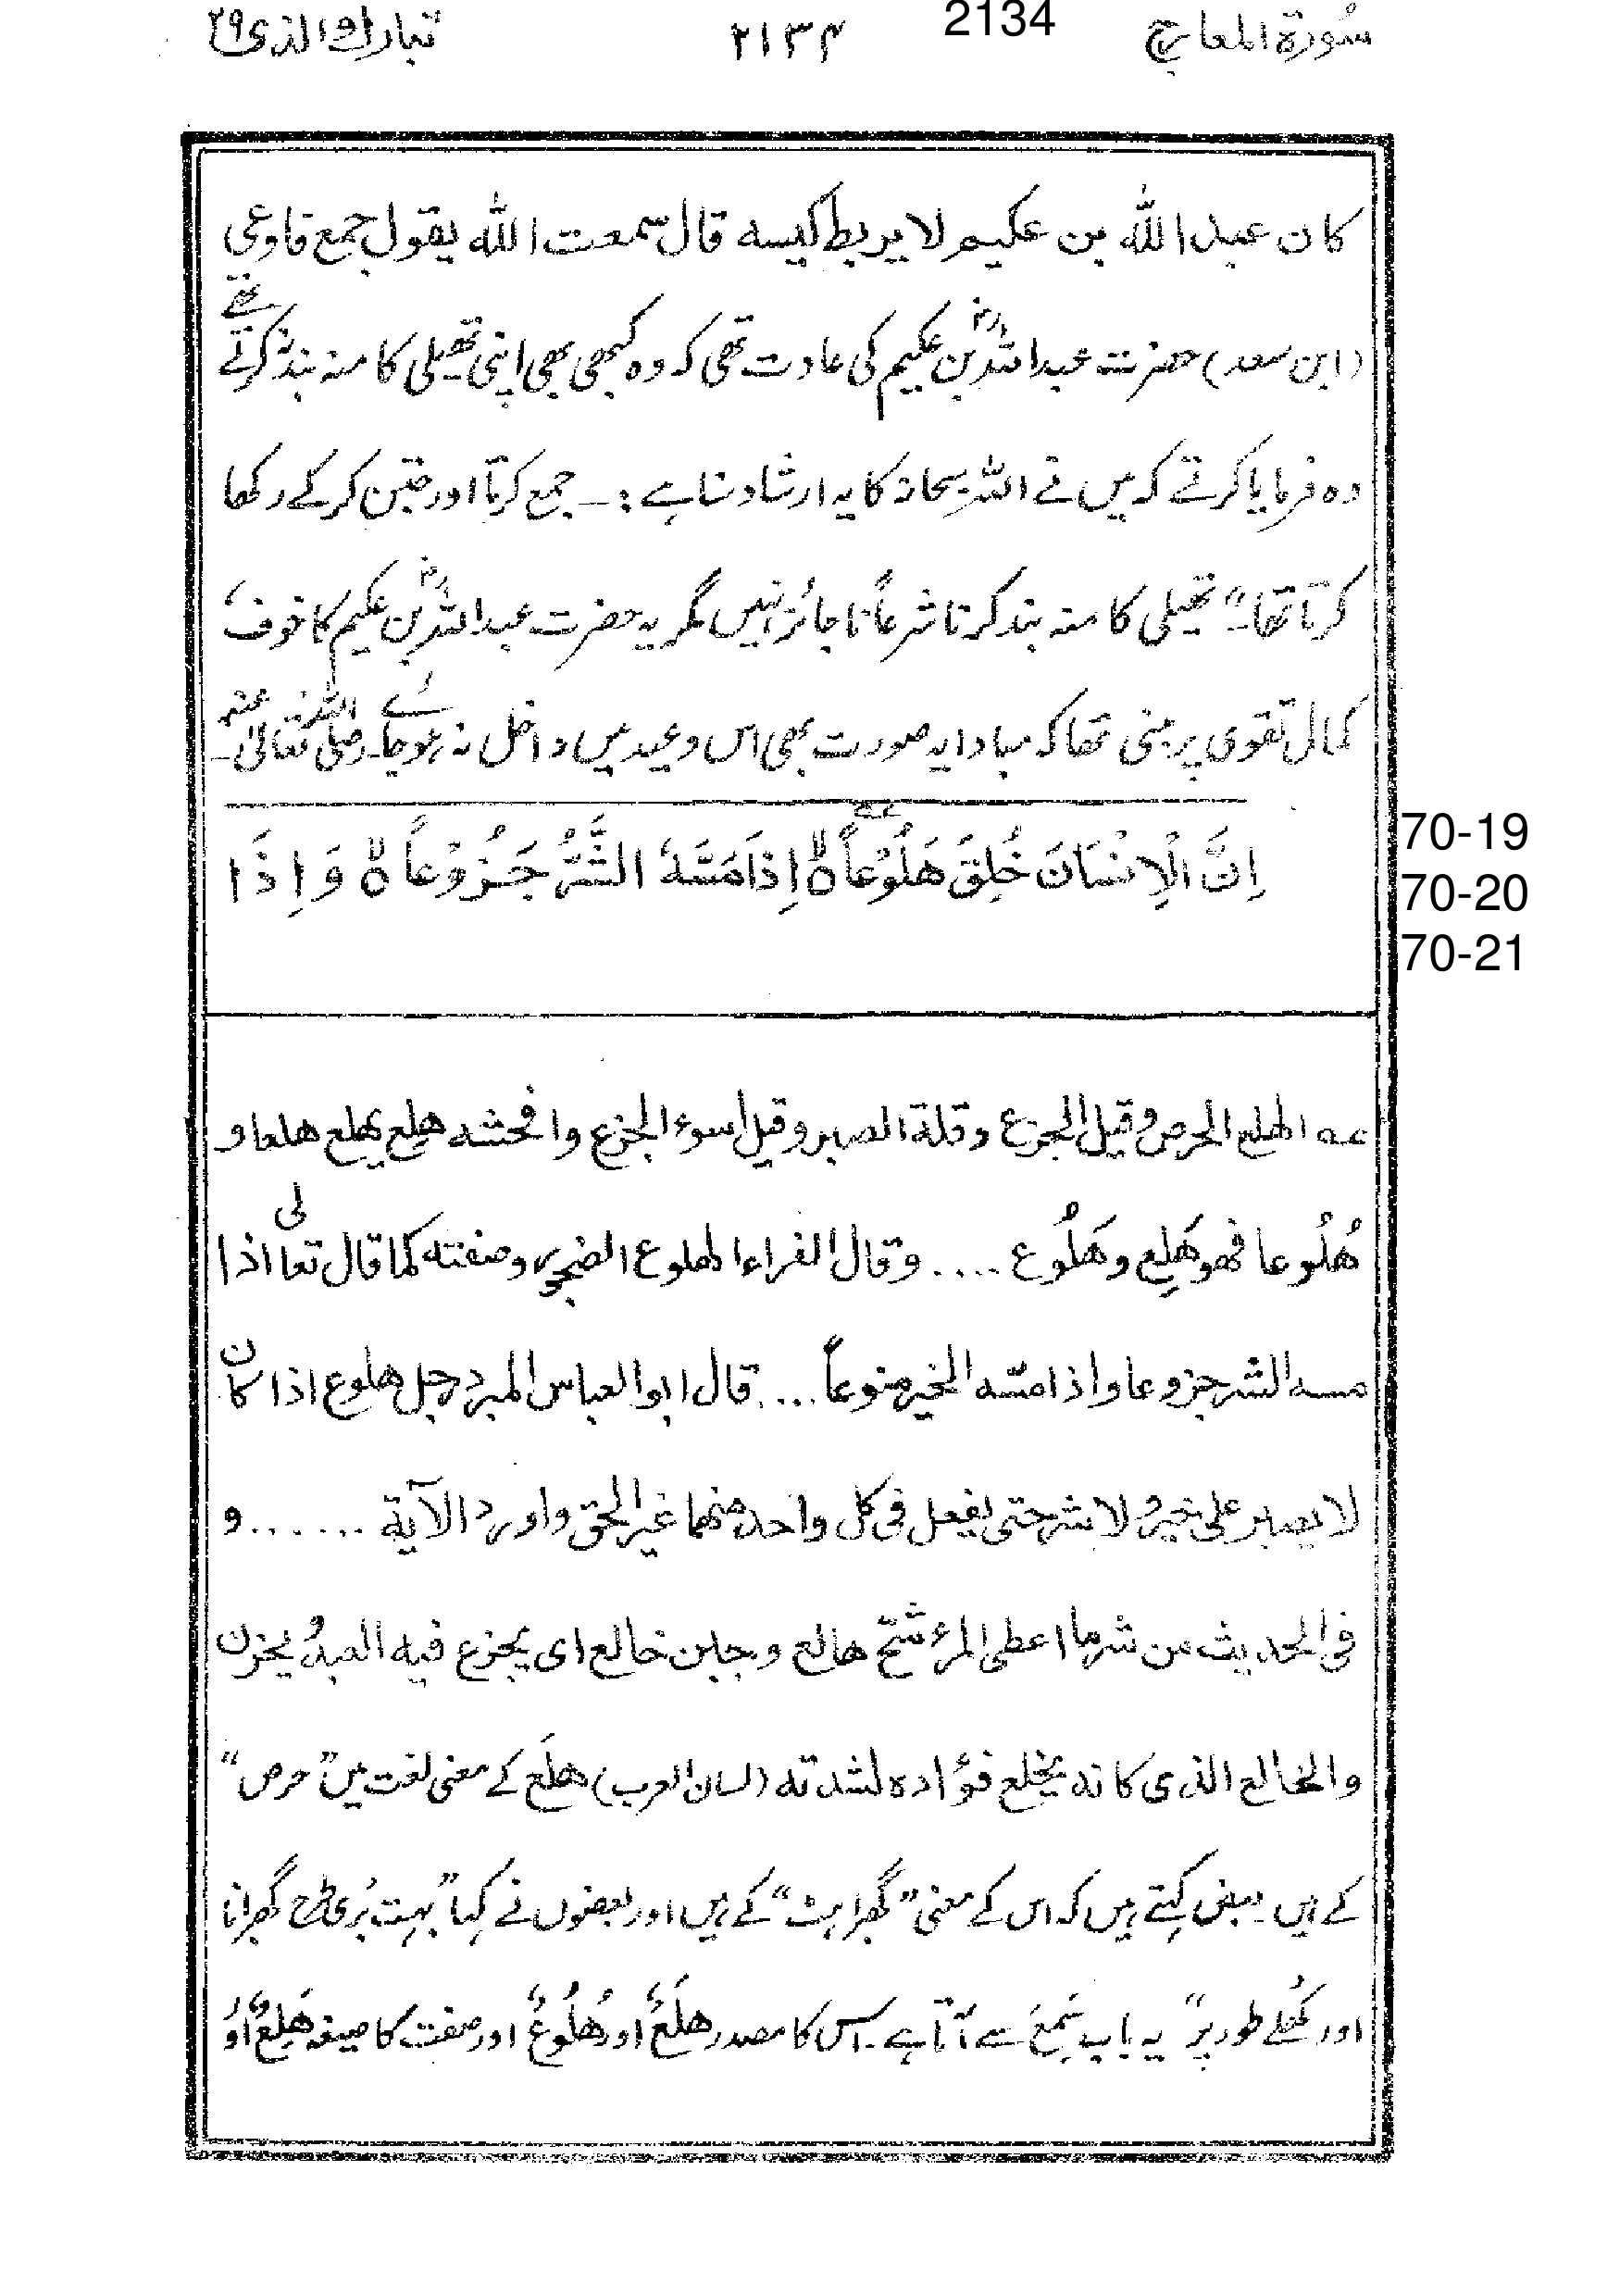 سُورة المعارج 2134 ٢١٣٤ تبارك الذى ٢٩
كان عبد الله بن عكيم لا يربط كيسه قال سمعت الله يقول جمع فاوعى
(ابن سعد) حضرت عبداللہؓ بن عکیم کی عادت تھی کہ وہ کبھی بھی اپنی تھیلی کا منہ بند نہ کرتے تھے
وہ فرمایا کرتے کہ میں نے اللہ سبحانہ کا یہ ارشاد سنا ہے :۔ جمع کرتا اور جتن کر کے رکھا
کرتا تھا۔“ تھیلی کا منہ بند کرنا شرعاً ناجائز نہیں مگر یہ حضرت عبداللہؓ بن عکیم کا خوف،
کمال تقوی پر مبنی تھا کہ مبادا یہ صورت بھی اس وعید میں داخل نہ ہو جائے۔ رضی اللہ تعالیٰ عنہ۔
اِنَّ الْاِنْسَانَ خُلِقَ هَلُوْعاًۙ اِذَا مَسَّهُ الشَّرُّ جَزُوْعاًۙ وَاِذَا
70-19
70-20
70-21
عه الهلع الحرص وقيل الجزع وقلة الصبر وقيل اسوء الجزع وافحشه هلِع يهلع هلعا و
هُلُوعا فهو هَلِع وهَلُوع .... وقال الفراء الهلوع الضجور وصفته كما قال تعالى اذا
مسه الشر جزوعا واذا مسّه الخير منوعاً .... قال ابو العباس المبرد رجل هلوع اذا كان
لا يصبر على خير ولا شر حتى يفعل فى كل واحد منهما غير الحق واورد الآية ...... و
فى الحديث من شر ما اعطى المرء شحّ هالع وجبن خالع اى يجزع فيه العبدُ يحزن
والخالع الذى كانه يخلع فؤاده لشدته (لسان العرب) هلَع کے معنی لغت میں ”حرص“
کے ہیں۔ بعض کہتے ہیں کہ اس کے معنی ”گھبراہٹ“ کے ہیں اور بعضوں نے کہا ”بہت بُری طرح گھبرانا
اور کُھلے طور پر“ یہ باب سَمِعَ سے آتا ہے۔ اس کا مصدر هلَعٌ اور هُلُوعٌ اور صفت کا صیغہ هَلِعٌ اوُ